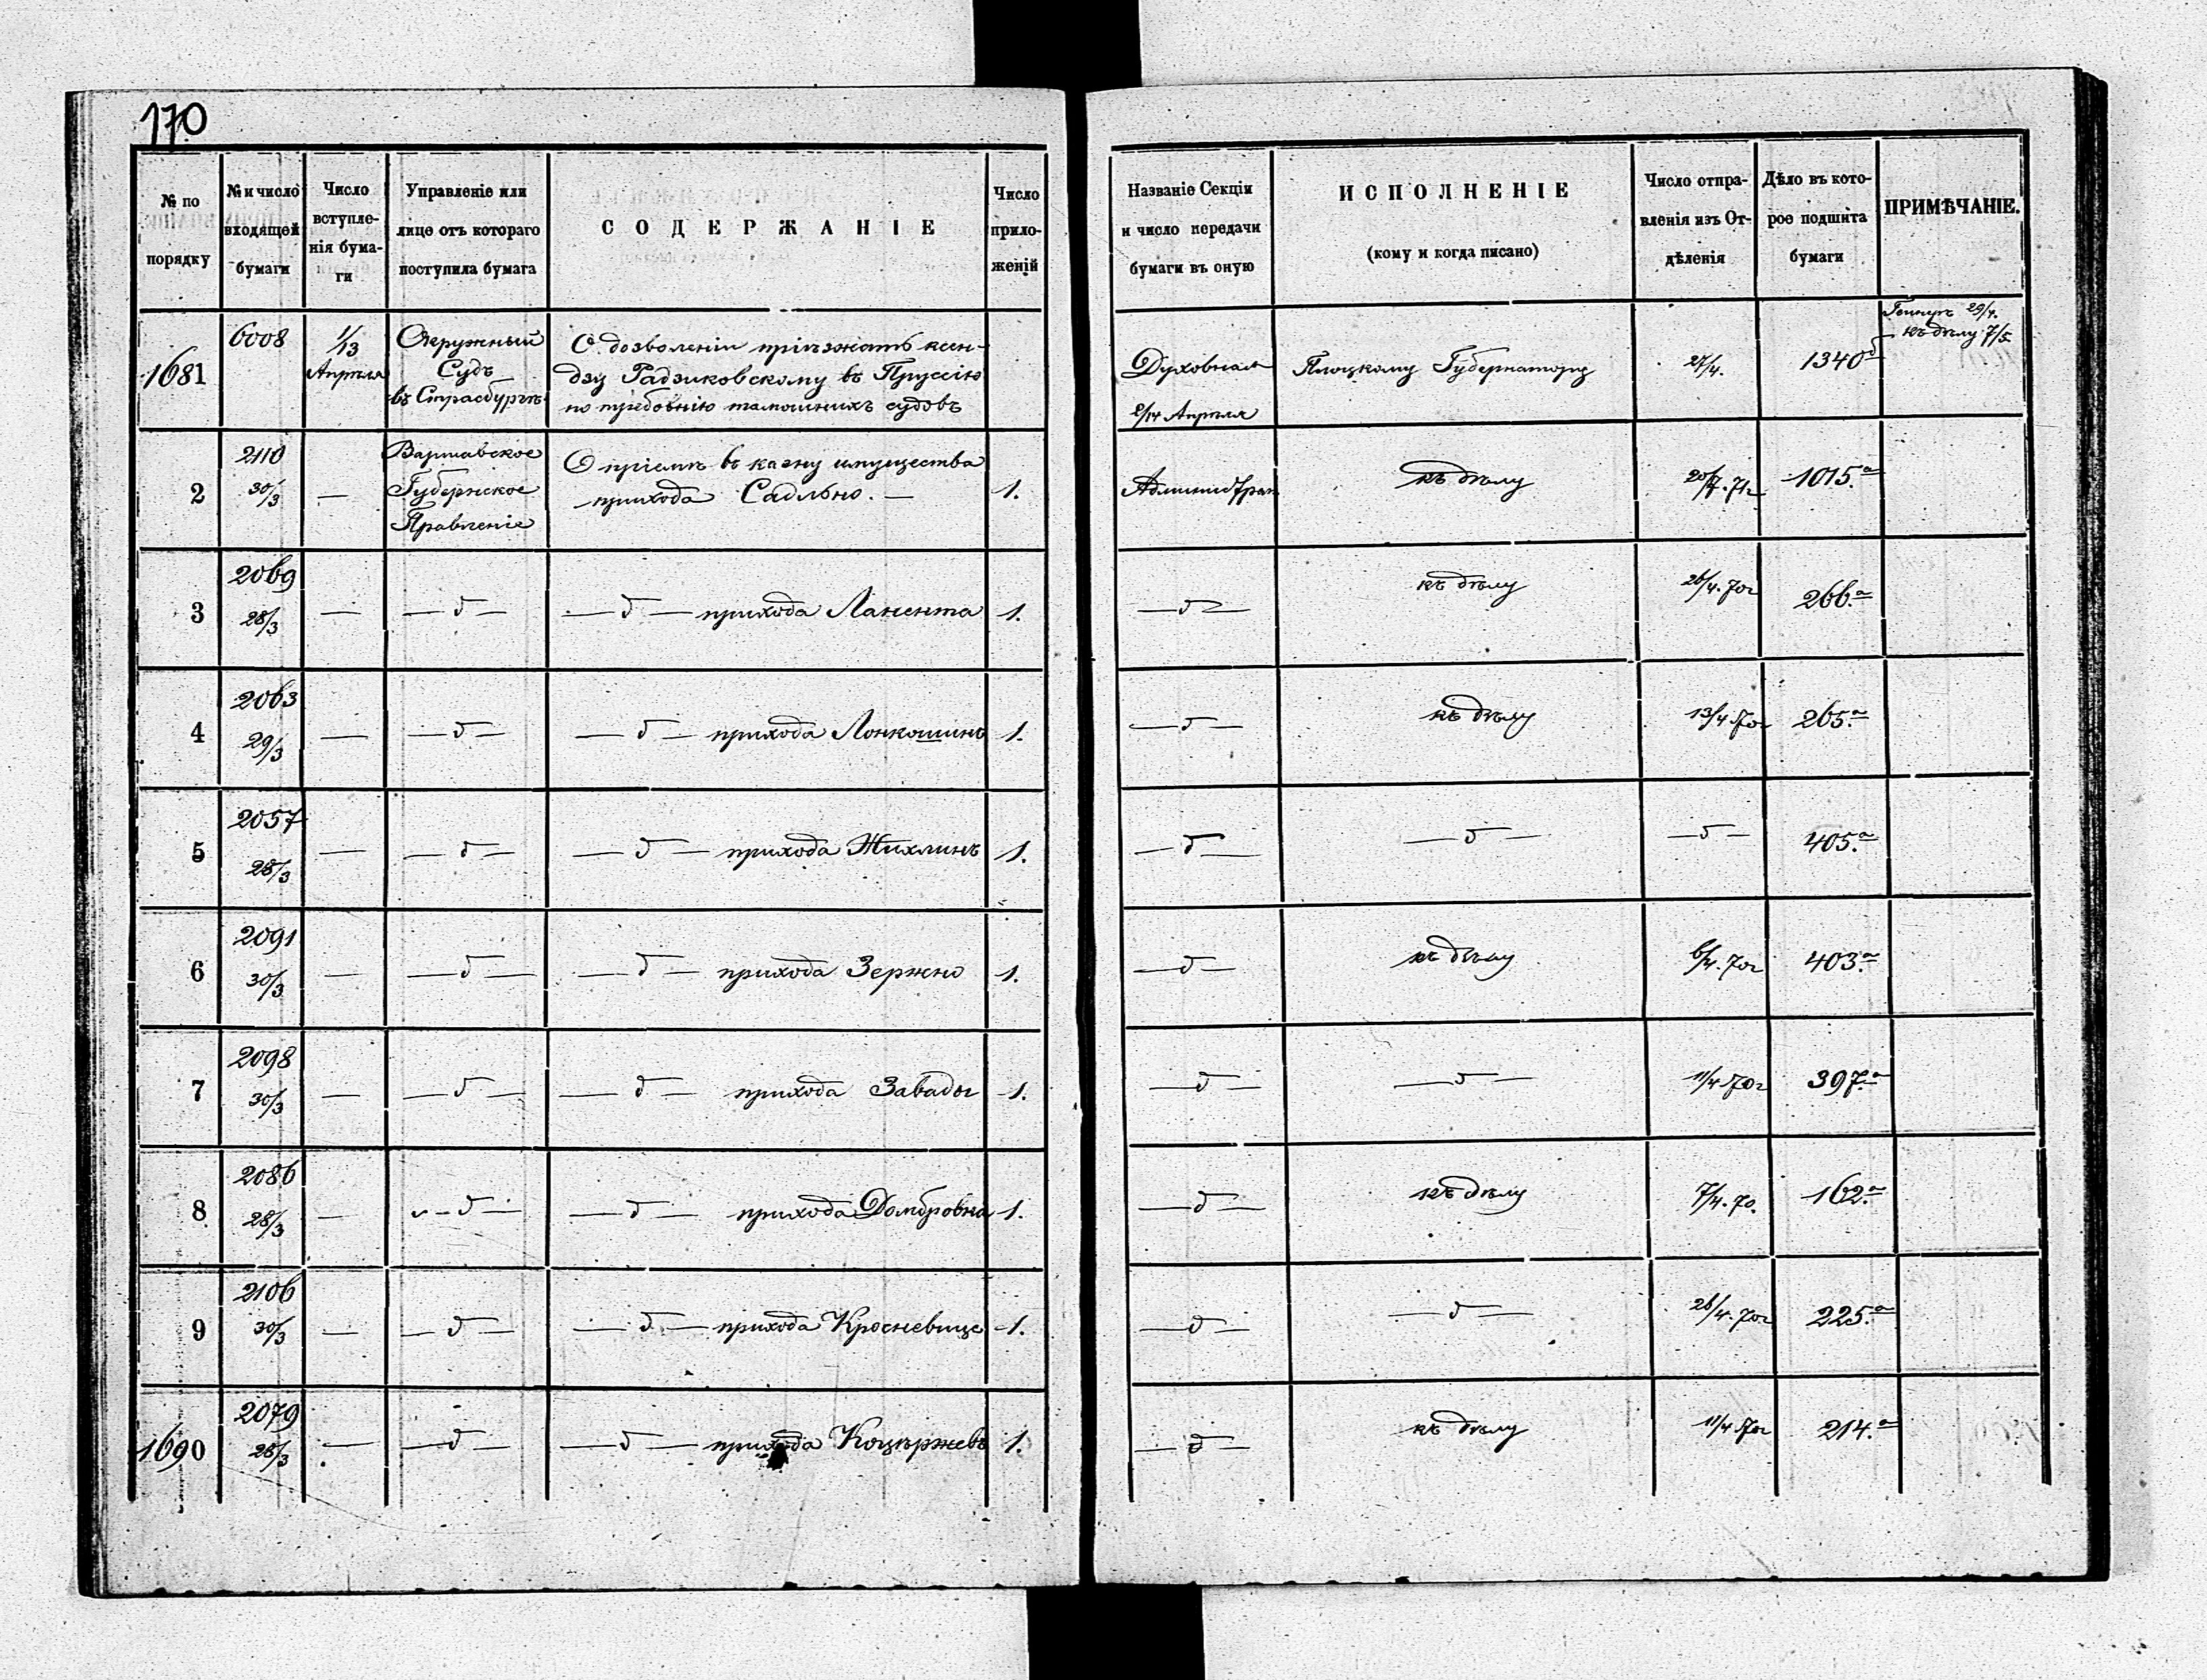 170
№ по порядку
№ и число входящей бумаги
Число вступле-нія бума-ги
Управленіе или лице отъ котораго поступила бумага
СОДЕРЖАНІЕ
Число прило-женій
Названіе Секціи и число передачи бумаги въ оную
ИСПОЛНЕНІЕ (кому и когда писано)
Число отпра-вленія изъ От-дѣленія
Дѣло въ кото-рое подшита бумаги
ПРИМѢЧАНІЕ.
1681
6008
1/13 Апрѣля
Окружный Судъ въ Страсбургѣ
О дозволеніи пріѣзжать ксен-
дзу Радзиковскому въ Пруссію
по требовнію тамошнихъ судовъ
Духовная
2/14 Апрѣля
Плоцкому Губернатору
27/4.
1340 б
29/4.
къ дѣлу 7/5
2
2110
30/3
—
Варшавское Губернское Правленіе
О пріемѣ въ казну имущества
прихода Садльно. —
1.
Администрац
къ дѣлу
20/7. 71г
1015.а
3
2069
28/3
—
— д —
— д — прихода Ланента
1.
— д —
къ дѣлу
26/4. 70г
266.а
4
2063
29/3
—
— д —
— д — прихода Лонкошинъ
1.
— д —
къ дѣлу
13/4 70г
265.а
5
2057
28/3
—
— д —
— д — прихода Жихлинъ
1.
— д —
— д —
— д —
405.а
6
2091
30/3
—
— д —
— д — прихода Зержно
1.
— д —
къ дѣлу
6/4. 70г
403.а
7
2098
30/3
—
— д —
— д — прихода Завады
1.
— д —
— д —
11/4 70г
397.а
8
2086
28/3
—
— д —
— д — прихода Домбровка
1.
— д —
къ дѣлу
7/4. 70.
162.а
9
2106
30/3
—
— д —
— д — прихода Кросневице
1.
— д —
— д —
26/4. 70г
225.а
1690
2079
28/3
—
— д —
— д — прихода Коцѣржевъ
1.
— д —
къ дѣлу
11/4 70г
214.а